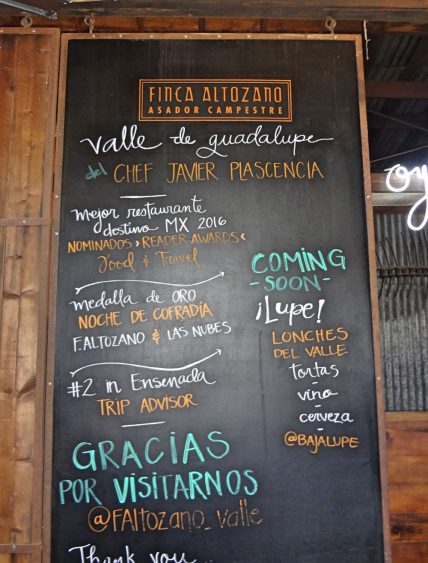 FINCA ALTOZANO
ASADOR CAMPESTRE
valle de guadalupe
del CHEF JAVIER PLASCENCIA
mejor restaurante
destino MX 2016
NOMINADOS >READER AWARDS<
Food & Travel
medalla de ORO
NOCHE DE COFRADÍA
F.ALTOZANO & LAS NUBES
#2 in Ensenada
TRIP ADVISOR
COMING
-SOON-
¡Lupe!
LONCHES
DEL VALLE
tortas
vino
cerveza
@BAJALUPE
GRACIAS
POR VISITARNOS
@FAltozano_valle
Thank you
oy